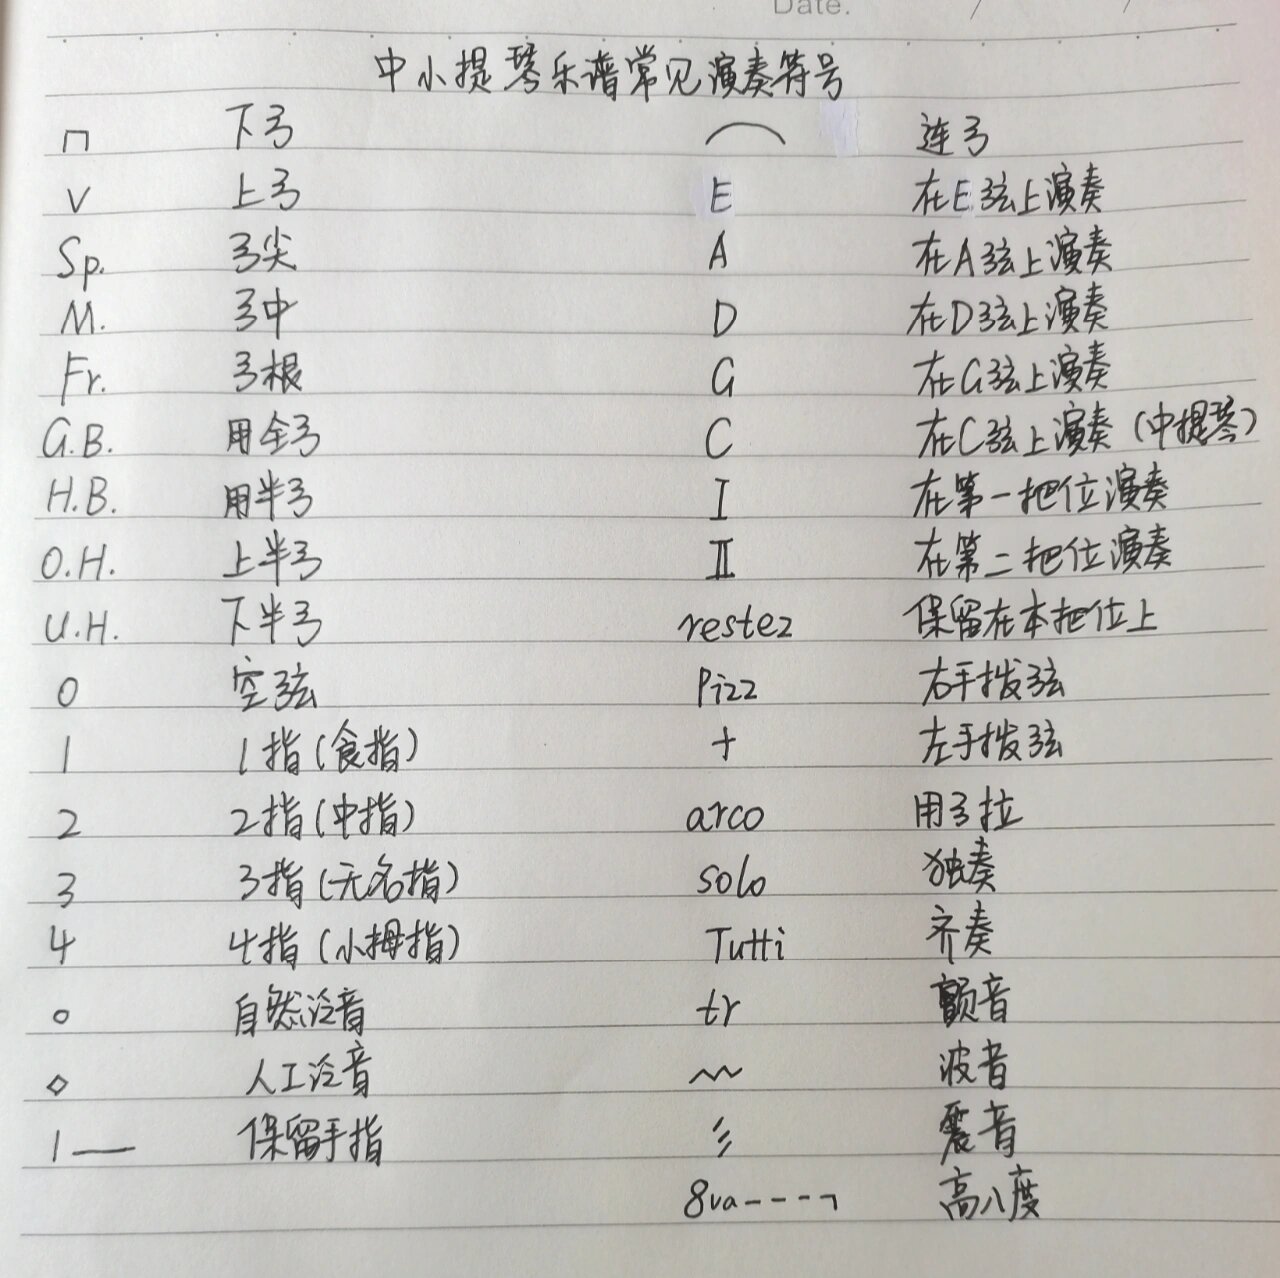 Date. / /
中小提琴乐谱常见演奏符号
⊓ 下弓 ⌒ 连弓
V 上弓 E 在E弦上演奏
Sp. 弓尖 A 在A弦上演奏
M. 弓中 D 在D弦上演奏
Fr. 弓根 G 在G弦上演奏
G.B. 用全弓 C 在C弦上演奏(中提琴)
H.B. 用半弓 I 在第一把位演奏
O.H. 上半弓 II 在第二把位演奏
U.H. 下半弓 restez 保留在本把位上
0 空弦 Pizz 右手拨弦
1 1指(食指) + 左手拨弦
2 2指(中指) arco 用弓拉
3 3指(无名指) solo 独奏
4 4指(小拇指) Tutti 齐奏
○ 自然泛音 tr 颤音
◇ 人工泛音 波音
1— 保留手指 震音
8va----¬ 高八度